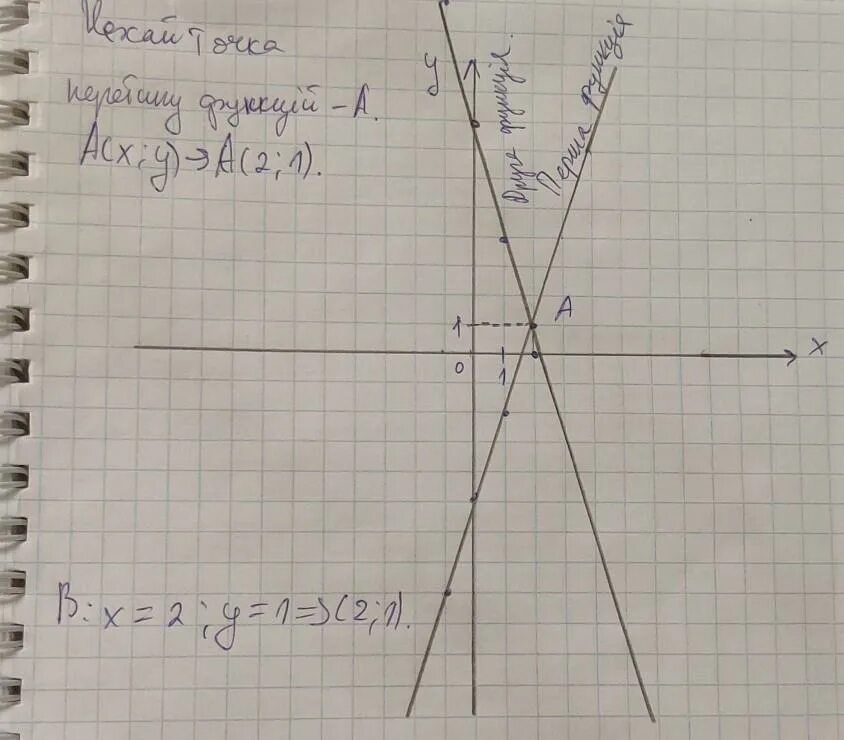 Нехай точка
перетину функцій - А.
А(х;у)→А(2;1).
у
Друга функція.
Перша функція
1
А
х
0
1
В: х = 2; у = 1 => (2;1).